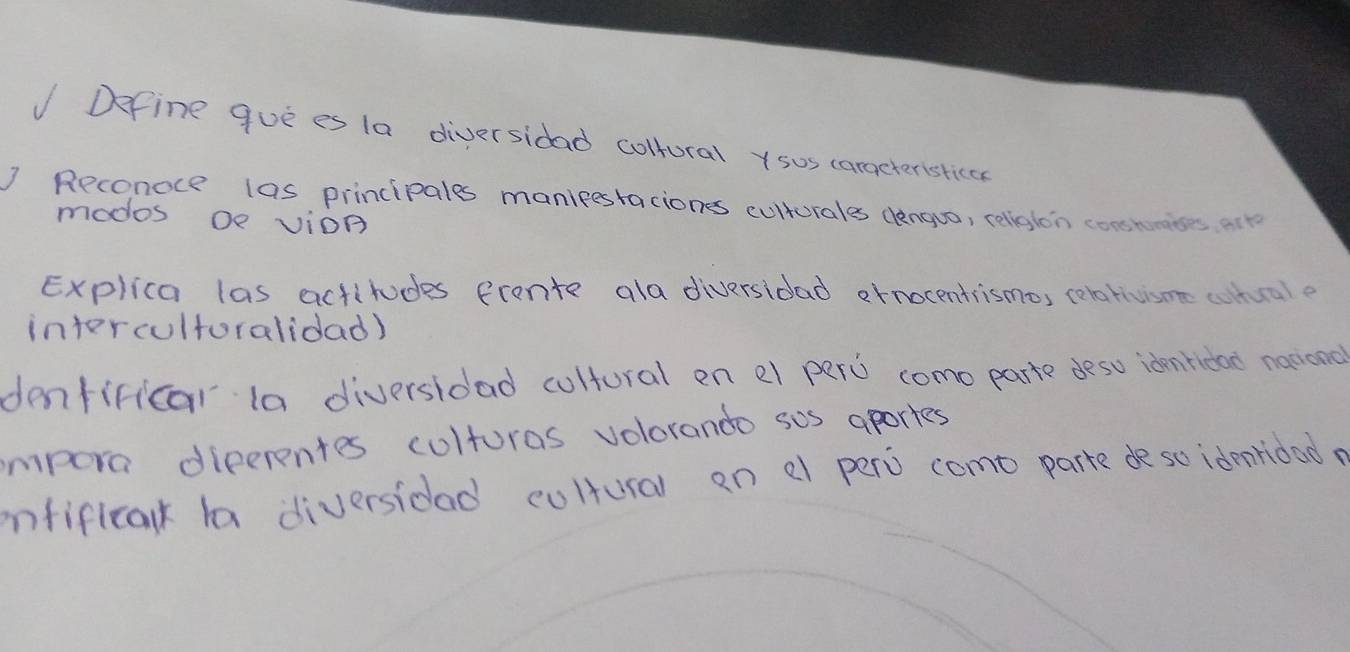 √ Define qué es la diversidad coltural y sus caracteristicas
√ Reconoce las principales manifestaciones culturales (lengua, religión constumbres, arte
modos De ViDA
Explica las actitudes frente ala diversidad etnocentrismo, relativismo cultural e
interculturalidad)
dentificar la diversidad coltural en el perú como parte desu identidad nacional
ompara diferentes colturas valorando sus aportes
entificar la diversidad cultural en el perú como parte de su identidad n